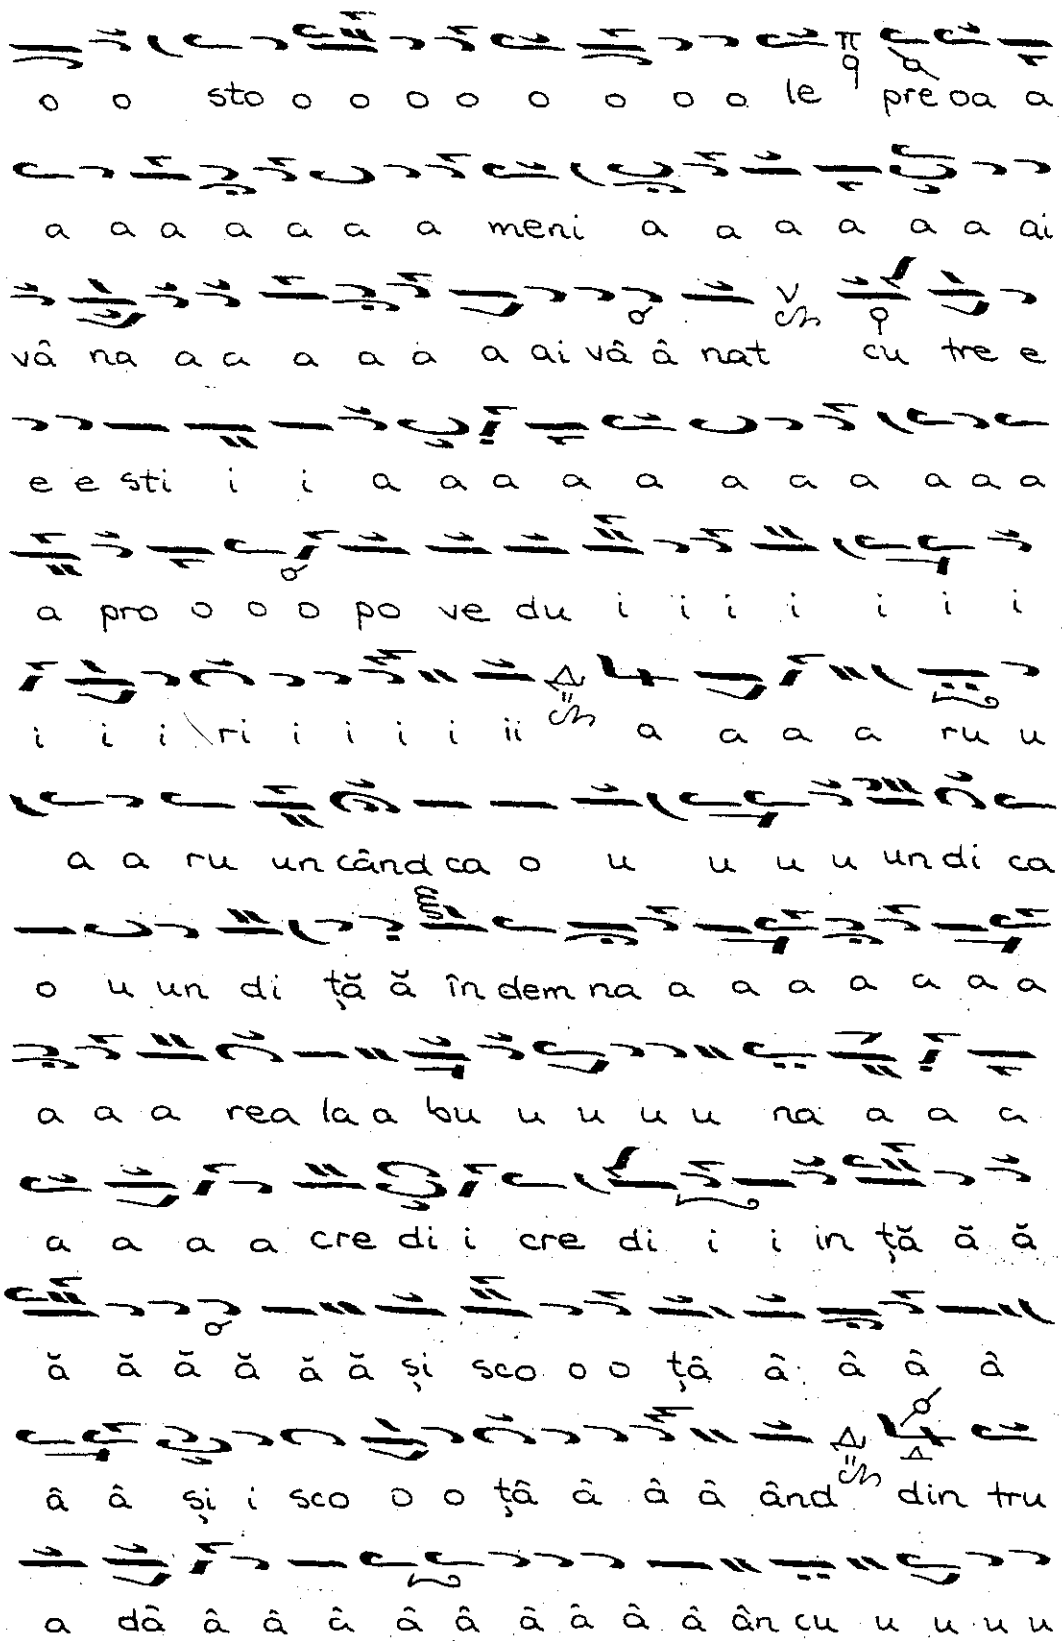 o o sto o o o o o o o o le preoa a
a a a a a a a meni a a a a a a ai
vâ na a a a a a a ai vâ â nat cu tre e
e e sti i i a a a a a a a a a a a
a pro o o o po ve du i i i i i i i
i i i ri i i i i ii a a a a ru u
a a ru un când ca o u u u u un di ca
o u un di ță ă în dem na a a a a a a a
a a a rea la a bu u u u u na a a a
a a a a cre di i cre di i i in ță ă ă
ă ă ă ă ă ă și sco o o țâ â â â â
â â și i sco o o țâ â â â ând din tru
a dâ â â â â â â â â â ân cu u u u u